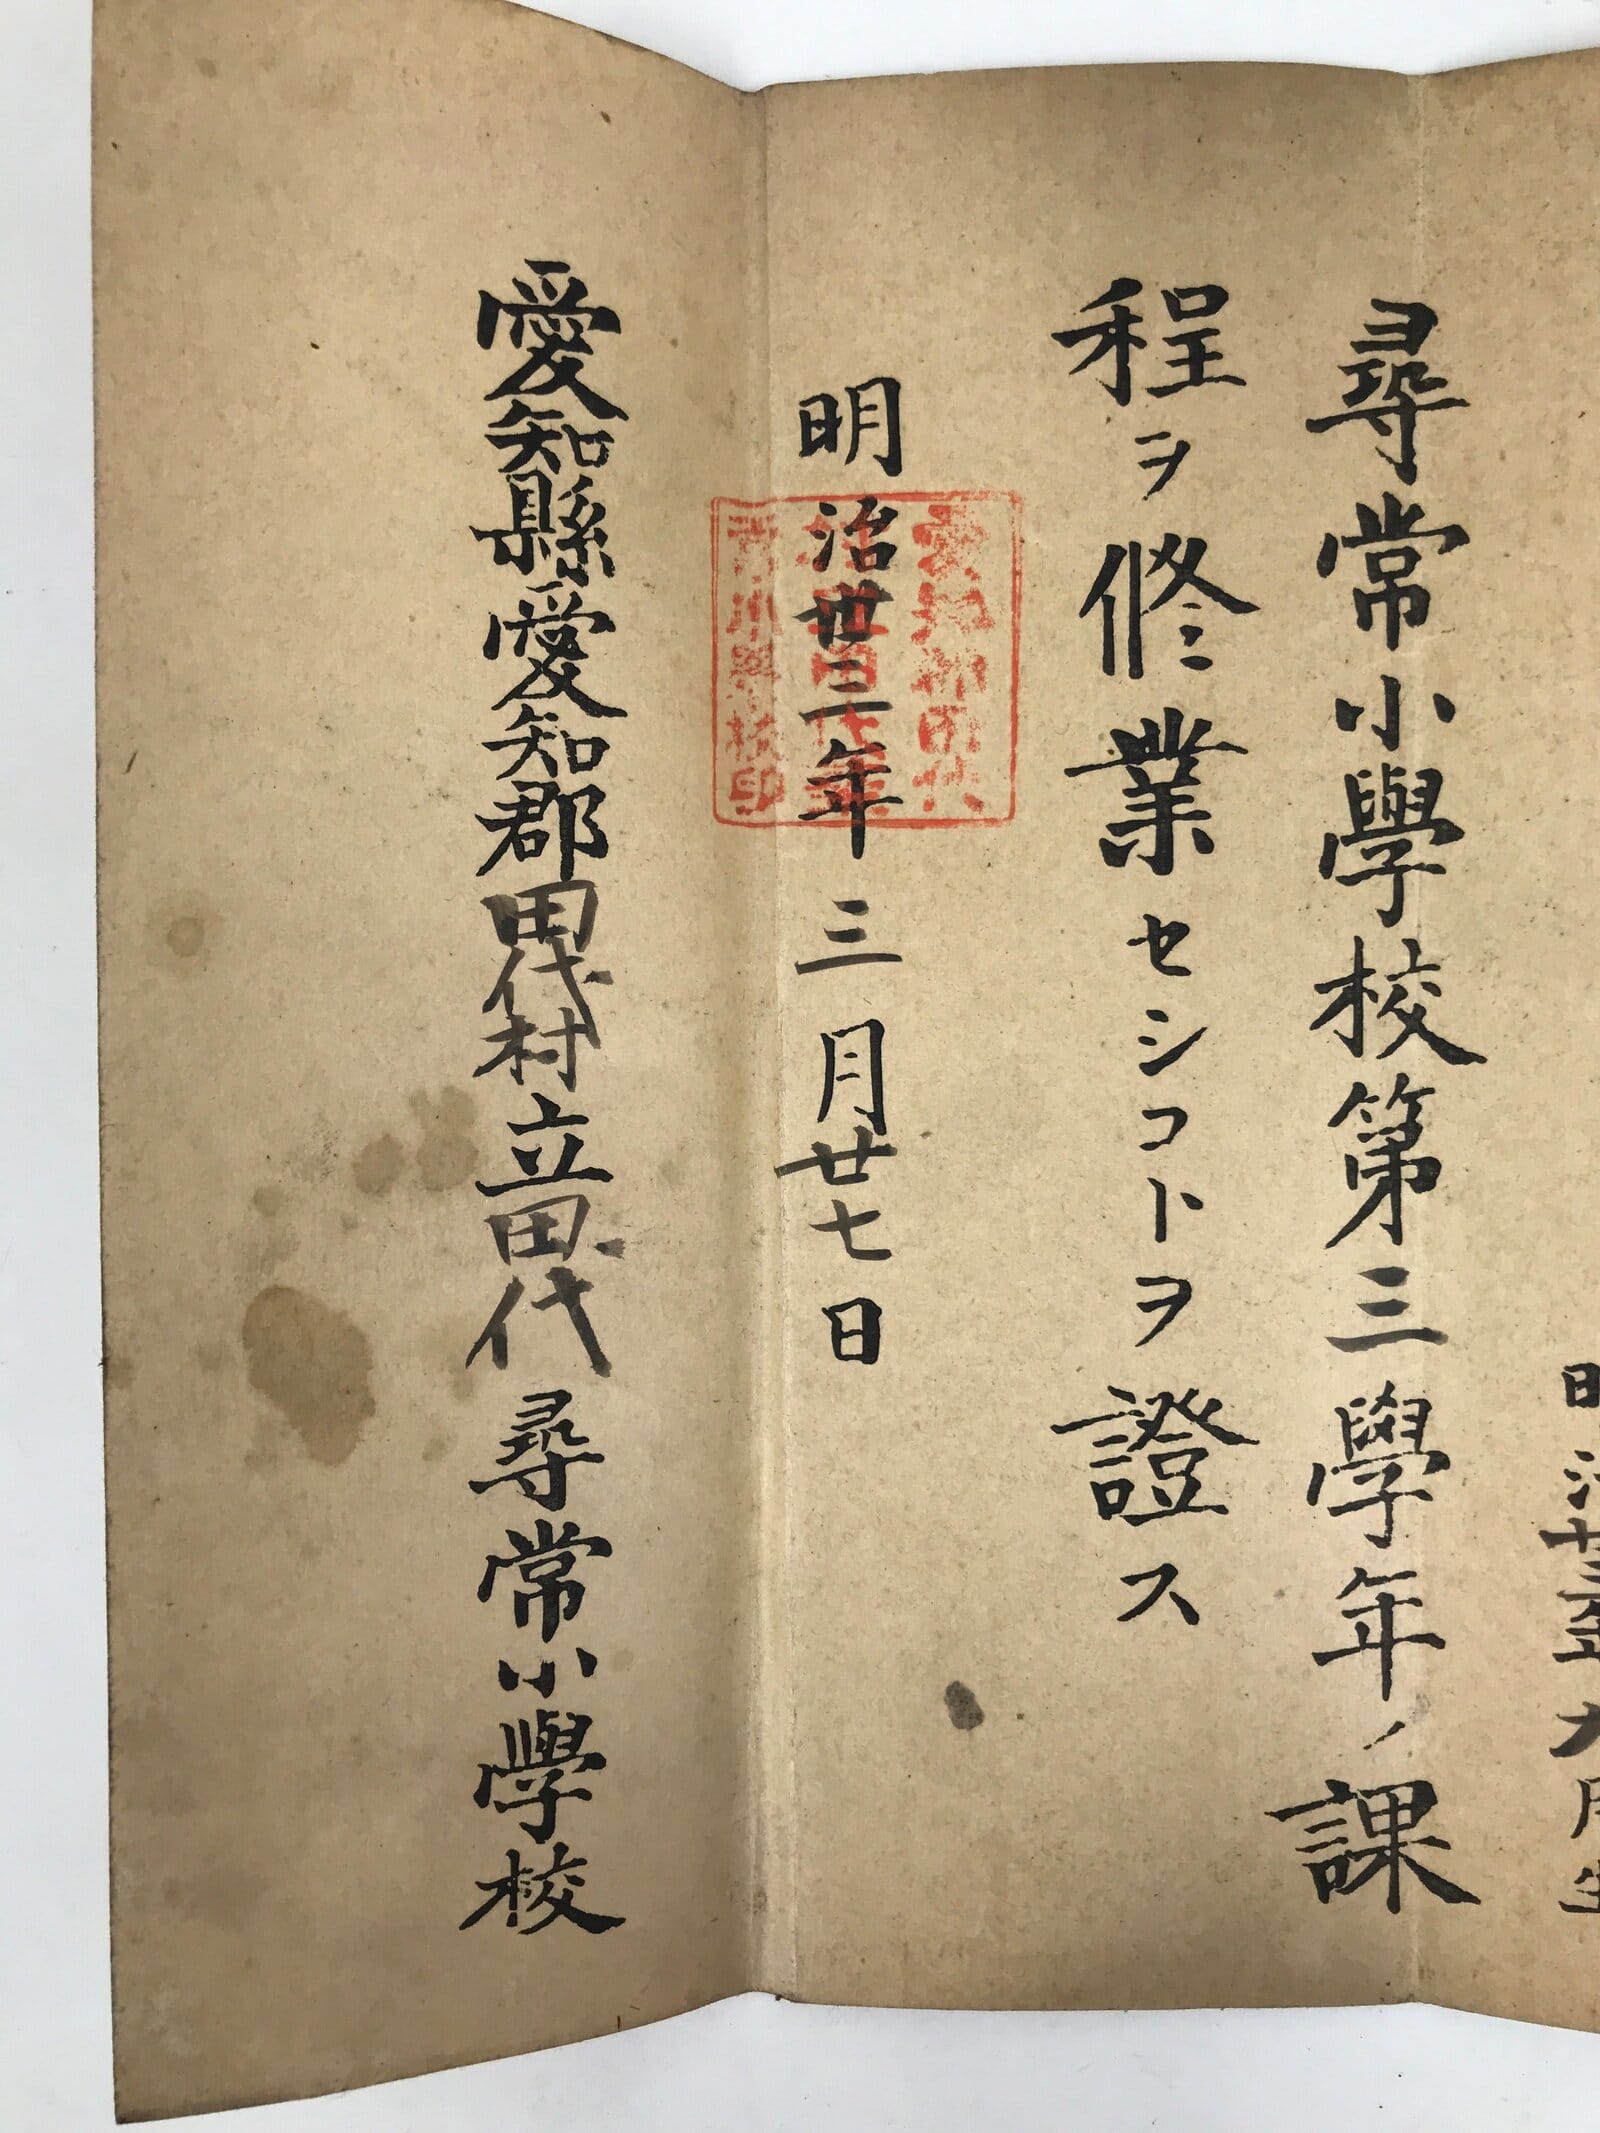 明治廿三年九月生
尋常小學校第三學年ノ課
程ヲ修業セシコトヲ證ス
明治丗三年三月廿七日
愛知郡田代
村立田代尋
常小學校印
愛知縣愛知郡田代村立田代尋常小學校